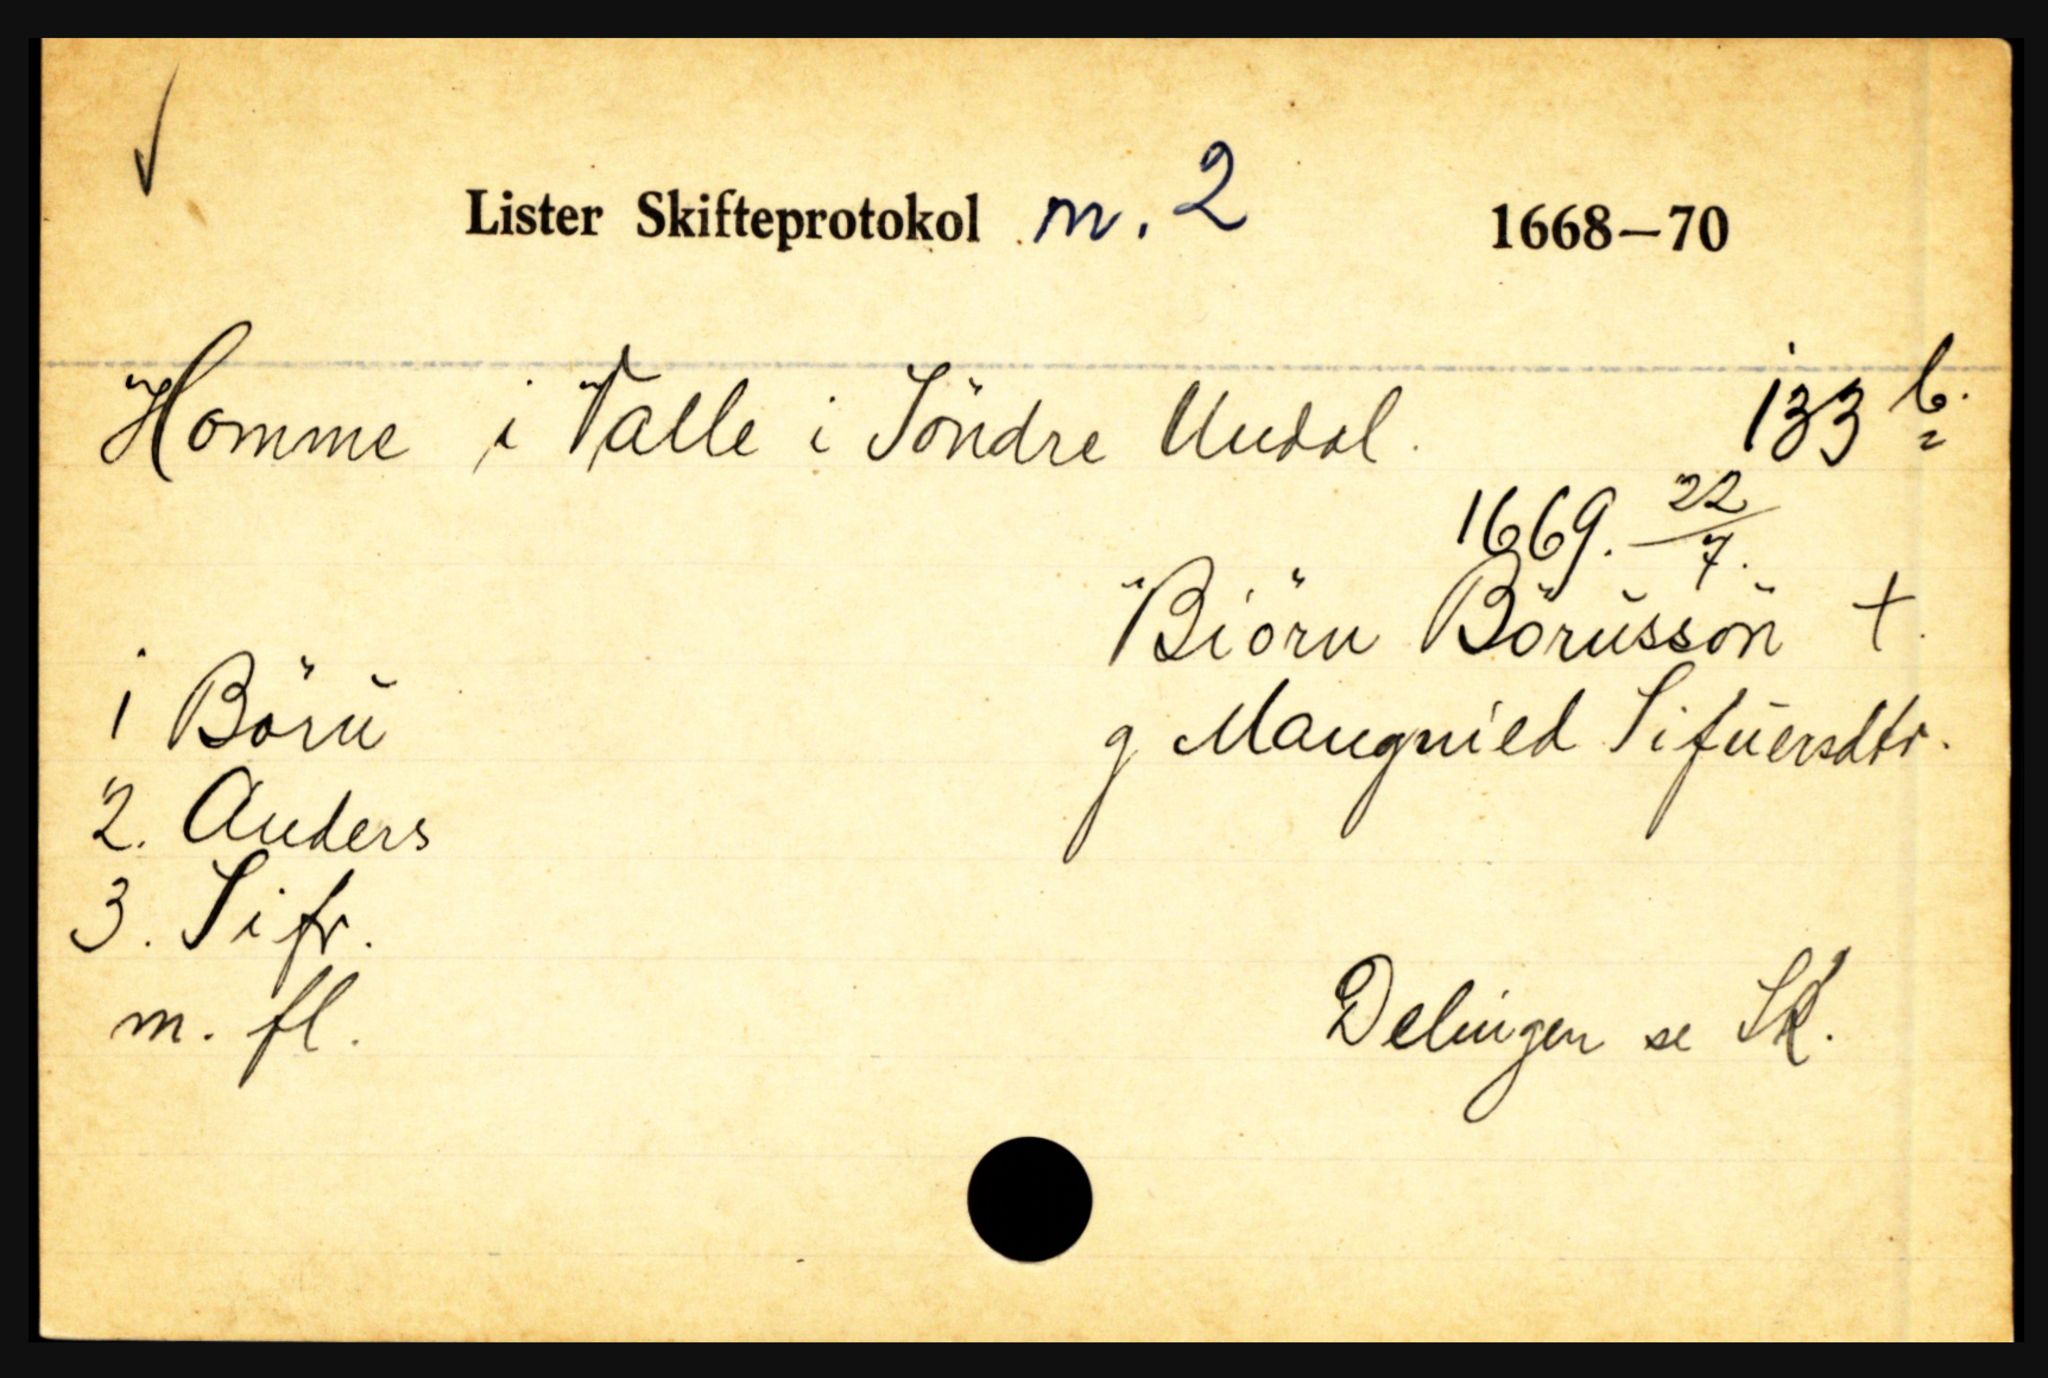 Lister Skifteprotokol nr. 2 1668–70
Homme i Valle i Söndre Undal. 133 b.
1669. 22/7.
Biörn Börnssön +.
g Mangnild Sifuersdtr.
1 Börn
2. Anders
3. Sifr.
m. fl.
Delingen se Sk.